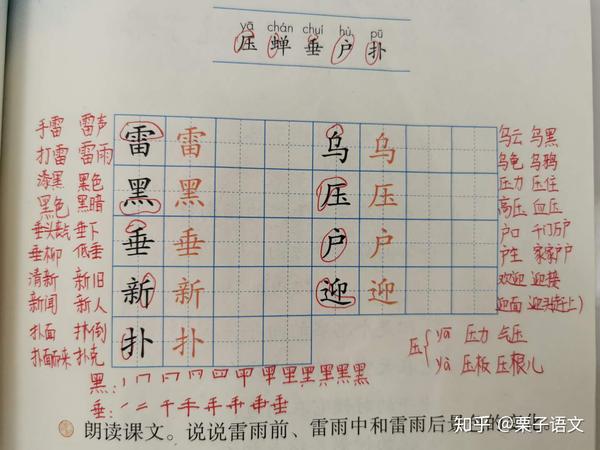 yā chán chuí hù pū
压 蝉 垂 户 扑
手雷 雷声 雷 雷 乌 乌 乌云 乌黑
打雷 雷雨 乌龟 乌鸦
漆黑 黑色 黑 黑 压 压 压力 压住
黑色 黑暗 高压 血压
垂头丧气 垂下 垂 垂 户 户 户口 千门万户
垂柳 低垂 家家户户
清新 新旧 新 新 迎 迎 欢迎 迎接
新闻 新人 迎面 迎头赶上
扑面 扑倒 扑 扑 压 yā 压力 气压
扑面而来 扑克 yà 压板 压根儿
黑:
垂:
朗读课文。说说雷雨前、雷雨中和雷雨后景色的变化
知乎 @栗子语文